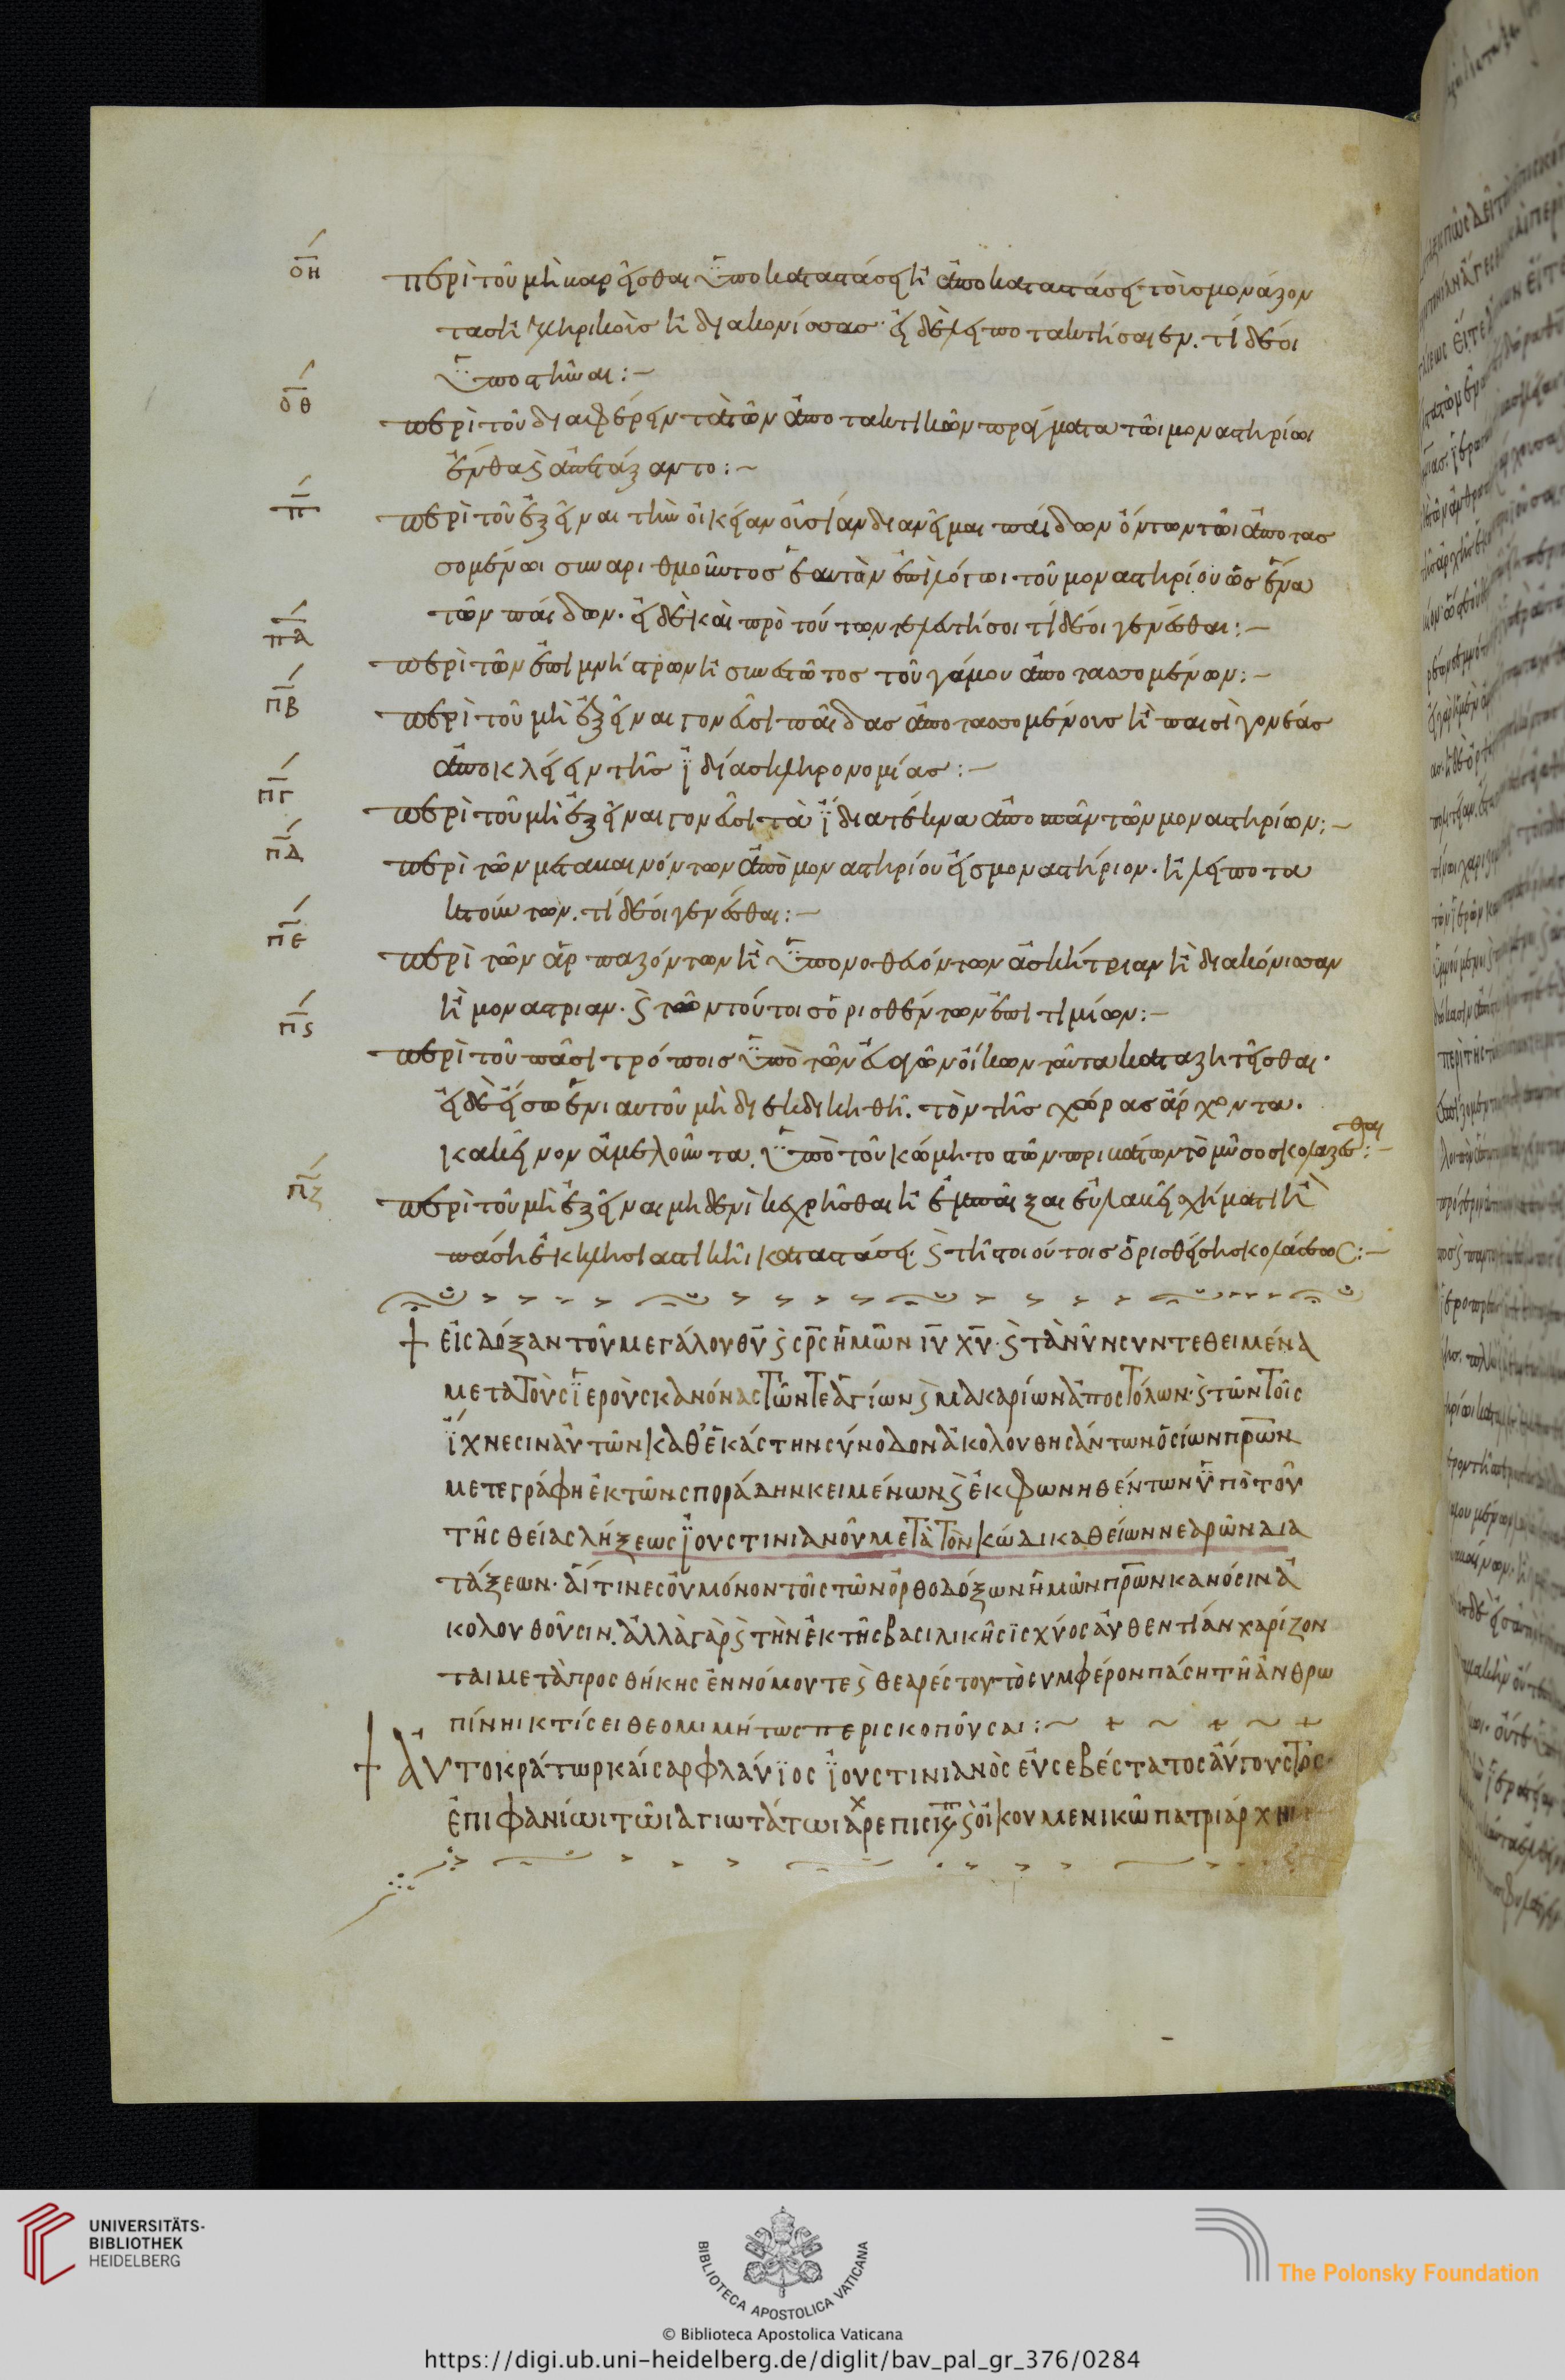 οη περὶ τοῦ μὴ κεχρεῖσθαι ὑποκαταστάσει ἢ ἀποκαταστάσει τοῖς μονάζον
τας ἢ κληρικοῖς ἢ διακονίσσας· εἰ δὲ λειποτακτήσαιεν. τί δέοι
ὑποστῆναι:–
οθ περὶ τοῦ διαφέρειν τὰ τῶν ἀποτακτικῶν πράγματα τῶι μοναστηρίωι
ἔνθα ϗ ἀπετάξαντο:~
π περὶ τοῦ ἐξεῖναι τὴν οἰκείαν οὐσίαν διανεῖμαι παίδων ὄντων τῶι ἀποτασ
σομένωι συναριθμοῦντος ἑαυτὸν ἐπὶ λόγωι τοῦ μοναστηρίου ὡς ἕνα
τῶν παίδων. εἰ δὲ καὶ πρὸ τούτων τελευτήσοι τί δέοι γενέσθαι:–
πα περὶ τῶν ἐπὶ μνήστρων ἢ συνεστῶτος τοῦ γάμου ἀποτασσομένων:–
πβ περὶ τοῦ μὴ ἐξεῖναι γονεῦσι παῖδας ἀποτασσομένους ἢ παισὶ γονέας
ἀποκλείειν τῆς ἰδίας κληρονομίας:–
πγ περὶ τοῦ μὴ ἐξεῖναι γονεῦσι τὰ ἴδια τέκνα ἀποσπᾶν τῶν μοναστηρίων:–
πδ περὶ τῶν μεταβαινόντων ἀπὸ μοναστηρίου εἰς μοναστήριον. ἢ λειποτα
κτούντων. τί δέοι γενέσθαι:–
πε περὶ τῶν ἁρπαζόντων ἢ ὑπονοθευόντων ἀσκήτριαν ἢ διακόνισσαν
ἢ μονάστριαν. ϗ τῶν τούτοις ὁρισθέντων ἐπιτιμίων:–
πϛ περὶ τοῦ πᾶσι τρόποις ὑπὸ τῶν εὐαγῶν οἴκων ταῦτα καταζητεῖσθαι.
εἰ δὲ εἴσω ἑνιαυτοῦ μὴ διεκδικηθῆ. τὸν τῆς χώρας ἄρχοντα.
κακεῖνον ἀμελοῦντα. ὑπὸ τοῦ κόμητο τῶν πριβάτων τὸ μῖσος κολάζεσθαι:–
πζ περὶ τοῦ μὴ ἐξεῖναι μηδενὶ κεχρῆσθαι ἢ ἐμπαῖξαι εὐλαβεῖ σχήματι ἢ
πάσηι ἐκκλησιαστικῆι καταστάσει. ϗ τῆς τοιούτοις ὁρισθείσης κολάσεως:–
+ εἰς δόξαν τοῦ μεγάλου θυ ϗ σρς ἡμῶν ιυ χυ. ϗ τὰ νῦν συντεθειμένα
μετα τοὺς ἱεροὺς κανόνας τῶν τε ἁγίων ϗ μακαρίων ἀποστόλων. ϗ τῶν τοῖς
ἴχνεσιν αὐτῶν καθ' ἑκάστην σύνοδον ἀκολουθησάντων ὁσίων πρων
μετεγράφη ἐκ τῶν σποράδην κειμένων ϗ ἐκφωνηθέντων ὑπὸ τοῦ
τῆς θείας λήξεως ἰουστινιανοῦ μετὰ τὸν κώδικα θείων νεαρῶν δια
τάξεων. αἵτινες οὐ μόνον τοῖς τῶν ὀρθοδόξων ἡμῶν πρων κανόσιν ἀ
κολουθοῦσιν. ἀλλὰ γὰρ ϗ τὴν ἐκ τῆς βασιλικῆς ἰσχύος αὐθεντίαν χαρίζον
ται μετὰ προσθήκης ἐννόμου τε ϗ θεαρέστου τὸ συμφέρον πάσητῆ ἀνθρω
πίνηι κτίσει θεομιμήτως περισκοποῦσαι:~ + ~ + ~ +
+ Αὐτοκράτωρ καίσαρ φλαύϊος ἰουστινιανὸς εὐσεβέστατος αὔγουστος
ἐπιφανίωι τῶι ἁγιωτάτωι ἀρχεπισκπ ϗ οἰκουμενικῶ πατριάρχηι
UNIVERSITÄTS-
BIBLIOTHEK
HEIDELBERG
BIBLIOTECA APOSTOLICA VATICANA
The Polonsky Foundation
© Biblioteca Apostolica Vaticana
https://digi.ub.uni-heidelberg.de/diglit/bav_pal_gr_376/0284